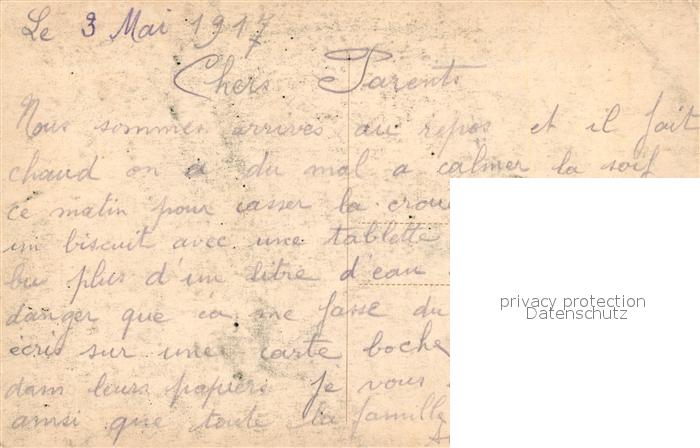 Le 3 Mai 1917
Chers Parents
Nous sommes arrives au repos et il fait
chaud on a du mal a calmer la soif
ce matin pour casser la crou
un biscuit avec une tablette
bu plus d'un litre d'eau
danger que ca me fasse du
écris sur une carte boche
dans leurs papiers Je vous
ainsi que toute la famille
privacy protection
Datenschutz